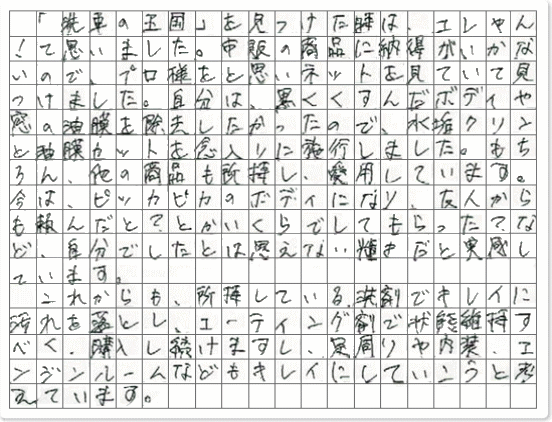 「洗車の王国」を見つけた時は、コレやん
!て思いました。市販の商品に納得がいかな
いので、プロ様をと思いネットを見ていて見
つけました。自分は、黒くくすんだボディや
窓の油膜を除去したかったので、水垢クリン
と油膜カットを念入りに施行しました。もち
ろん、他の商品も所持し、愛用しています。
今は、ピッカピカのボディになり、友人から
も頼んだと?とかいくらでしてもらった?な
ど、自分でしたとは思えない輝きだと実感し
ています。
これからも、所持している洗剤でキレイに
汚れを落とし、コーティング剤で状態維持す
べく、購入し続けますし、足周りや内装、エ
ンジンルームなどもキレイにしていこうと考
えています。